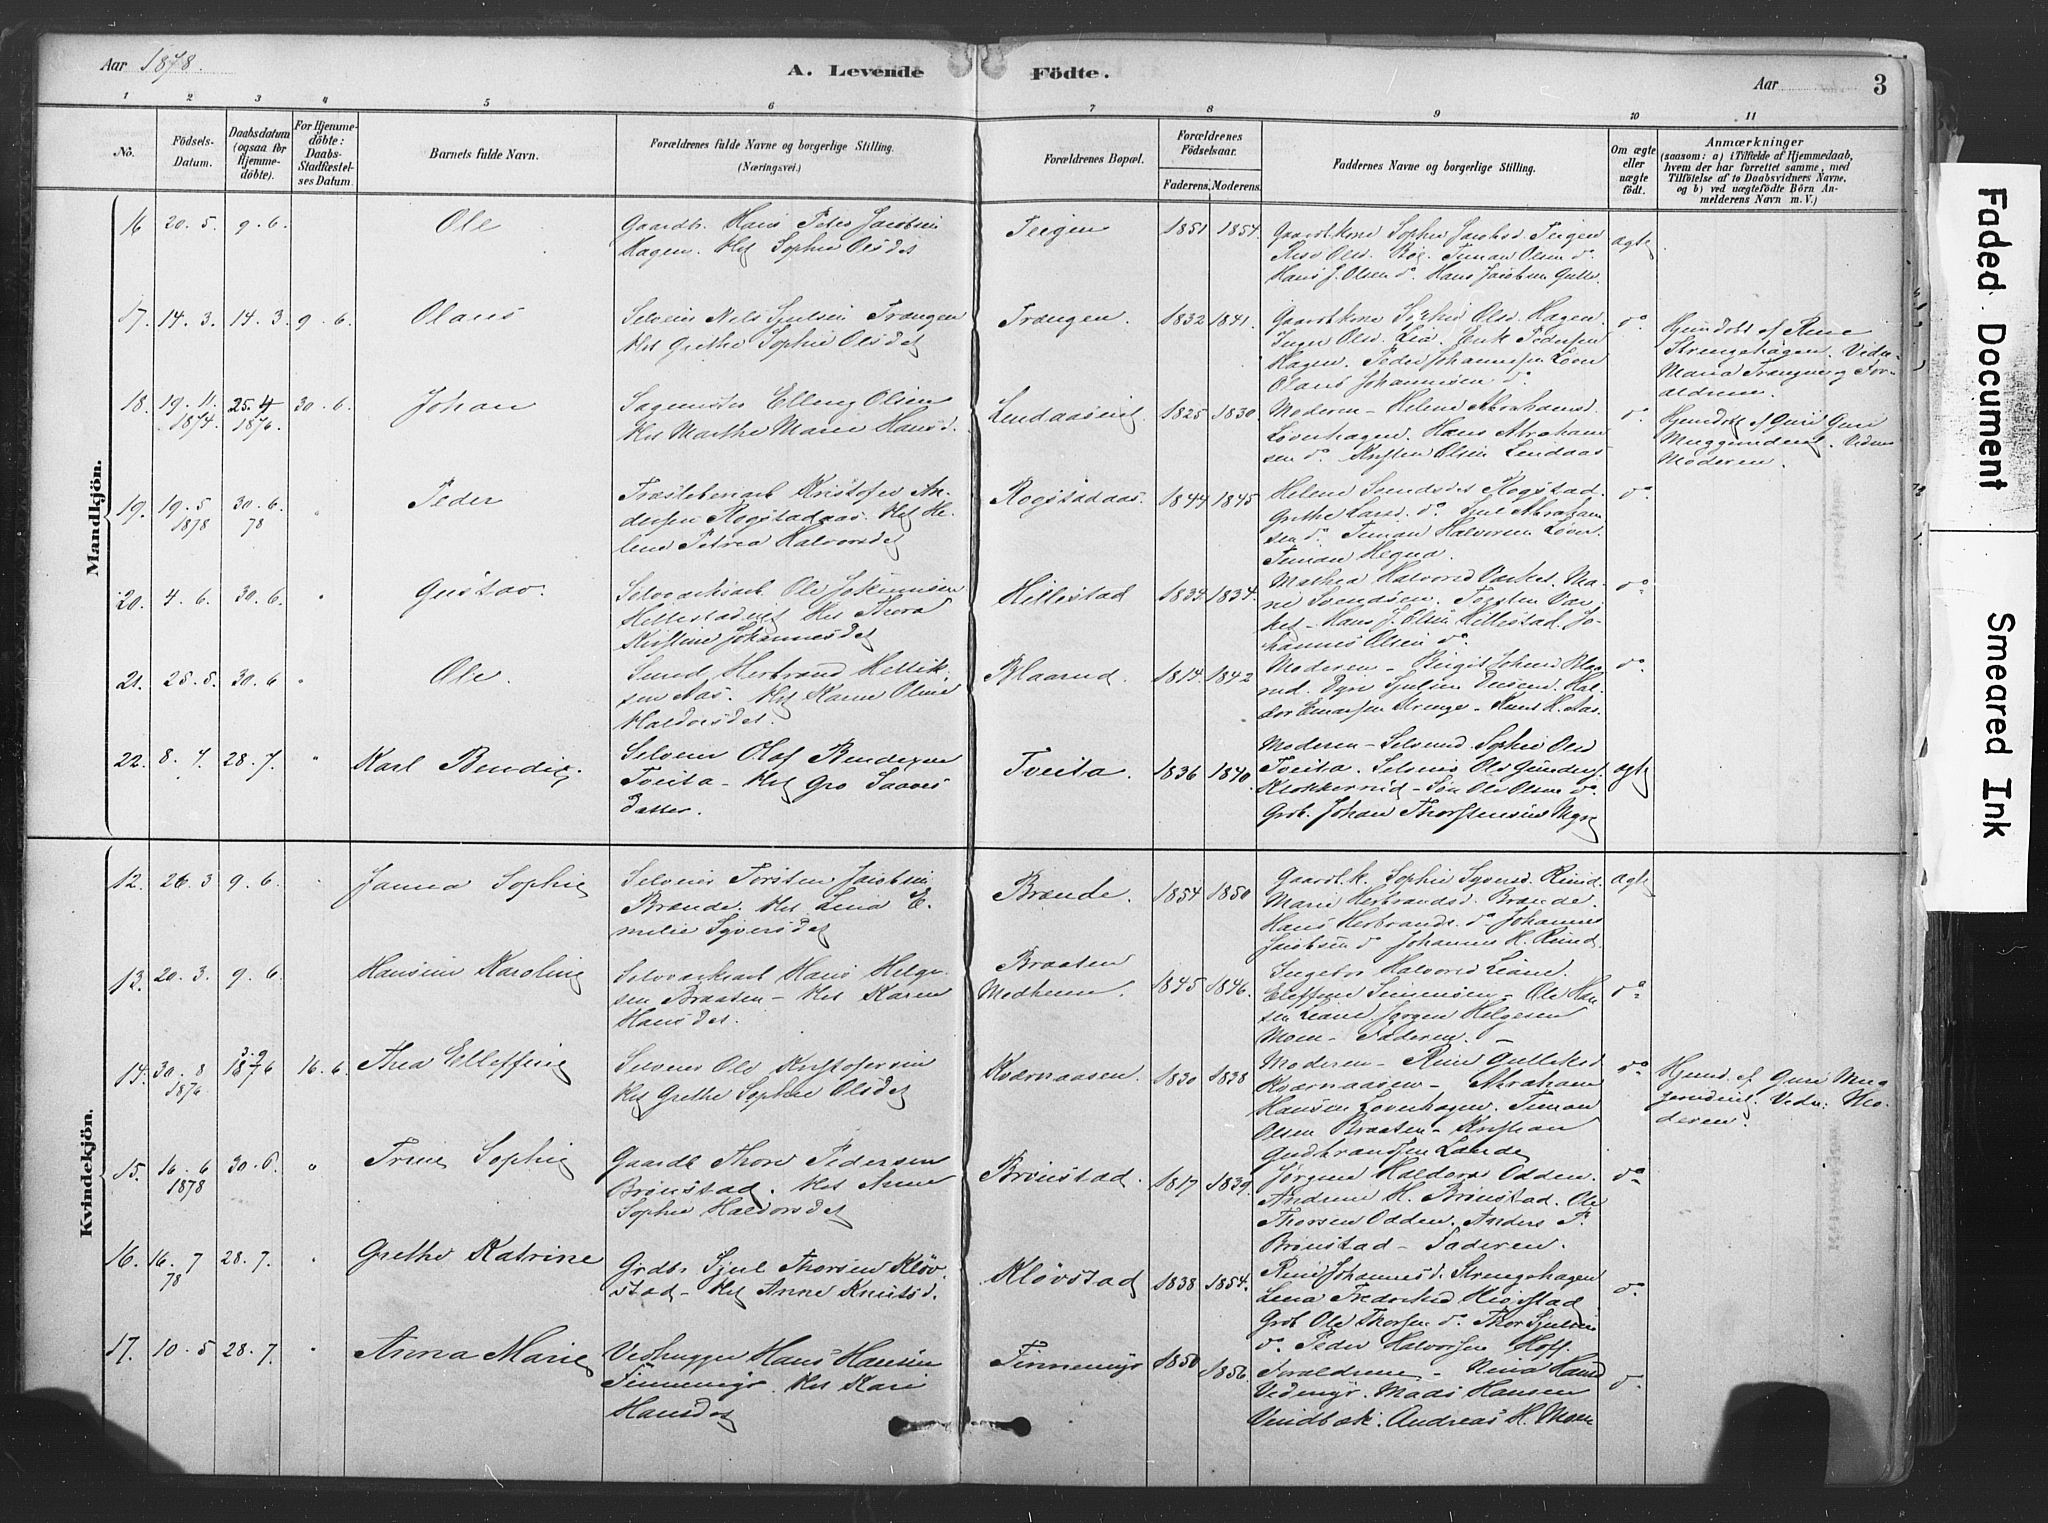 Aar 1878.
A. Levende Födte.
Aar
3
1 2 3 4 5 6 7 8 9 10 11
No.
Födsels-Datum.
Daabsdatum (ogsaa for Hjemme-döbte).
For Hjemme-döbte: Daabs-Stadfæstel-ses Datum.
Barnets fulde Navn.
Forældrenes fulde Navne og borgerlige Stilling. (Næringsvei.)
Forældrenes Bopæl.
Forældrenes Födselsaar.
Faderens. Moderens.
Faddernes Navne og borgerlige Stilling.
Om ægte eller uægte födt.
Anmærkninger
(saasom: a) i Tilfælde af Hjemmedaab, hvem der har forrettet samme, med Tilföielse af to Daabsvidners Navne, og b) ved uægtefödte Börn An-melderens Navn m. V.)
Mandkjön.
16 20. 5. 9. 6. Ole
Gaardb. Hans Peter Jacobsen
Hagen. Hst Sophie Olsdet
Teigen 1851 1854.
Gaardbkone Sophie Jacobsd. Teigen
Olsd. Tuman Olsen do
Hans J. Olsen do. Hans Jacobsen
ægte
17. 14. 3. 14. 3. 9. 6. Olaus
Selveier Nils Gjulsen Trangen
Hst Grethe Sophie Olsdet
Trangen. 1832 1841.
Gaardbkone Sophie Olsd. Hagen.
Inger Olsd. Lia. Pedersen
Hagen. Peder Johannesen Löver
Olaus Johannesen do
do
Hjemdöbt af Rine
Strengehagen. Vidn.
Maria Trangen og For-
ældrene.
18. 19. 11. 1874. 25. 4 1876. 30. 6. Johan
Sagmester Elling Olsen
Hst Marthe Marie Hansd.
Lendaaseiet 1825 1830
Moderen - Helene Abrahamsd.
Löverhagen. Hans Abraham
sen do. Kristen Olsen Lendaas
do
Hjemdöbt af Guri
Muggerudeiet. Vidne
Moderen.
19. 19. 5 1878 30. 6. 78 " Peder
Træsliberiarb. Kristofer An-
dersen Rogstadaas. Hst He-
lene Petrea Halvorsdet
Rogstadaas. 1844 1845
Helene Svendsdet Rogstad.
Grethe Larsd. do. Gjul Abraham
sen do. Tuman Halvorsen Löver
Tuman Hegna.
do
20. 4. 6. 30. 6. " Gustav.
Sölvverksarb. Ole Johannesen
Hillestadeiet Hst Thora
Kristine Johannesdet
Hillestad 1834. 1834.
Mathea Halvorsd Varket. Ma-
rie Svendsen. Torsten Var-
ket - Hans J. Olsen Hillestad. Jo-
hannes Olsen do
do
21. 25. 5. 30. 6 " Ole.
Herbrand Hellik-
sen Aas. Hst Karen Oline
Haldorsdet
Blaarud. 1814. 1842
Moderen - Birgit Johnsd. Blaa-
rud. Gjulsen Hal-
dor Strenge - Hans H. Aas.
do
22. 8. 4. 28. 7. " Karl Bendix.
Selveier Olaf Bendixen
Tveita - Hst Gro Saaves
datter.
Tveita. 1836 1840.
Moderen - Sophie Olsd
Tveita. Selveier Ole Gunders.
Klokkerud - Søn Ole Olsen do.
Grb. Johan Thorstensen Myre
ægte
Kvindekjön.
12. 26. 3 9. 6. " Janna Sophie
Selveier Torsten Jacobsen
Brænde. Hst Lena E-
milie Syversdet
Brænde. 1854 1850
Gaardbk. Sophie Syversd. Ruud.
Marie Herbrandsd. Brænde.
Hans Herbrands. do Johannes
Jacobsen do Johannes H. Ruud.
ægte
13. 20. 3. 9. 6. Hansine Karoline
Sölvverksarb Hans Helge-
sen Braaten - Hst Karen
Hansdet.
Braaten
Medheien. 1845 1846.
Ingebor Halvorsd Liane.
Eleffine Simensen - Ole Han
sen Liane Jørgen Helgesen
Moen - Faderen. -
do
14. 30. 8 1876 3. 9 1876 16. 6. Thea Elleffine
Selveier Ole Kristofersen
Hst Grethe Sophie Olsdet
Kværnaasen. 1830 1838
Moderen - Rine Gulleksd
Kværnaasen - Abraham
Hansen Lövenhagen. Tuman
Olsen Braaten - Kristian
Gudbrandsen Lande
do
Hjemd. af Guri Mug
gerudeiet. Vidn: Mo-
deren.
15. 16. 6 1878 30. 6. " Trine Sophie
Gaardb Thore Pedersen
Brönstad. Hst Anne
Sophie Haldorsdet
Brönstad. 1817 1839.
Jørgine Haldors Odden.
Andrine H. Brönstad. Ole
Thorsen Odden. Anders P.
Brönstad - Faderen.
do
16. 16. 7 78 28. 7. " Grethe Katrine
Grdbr Gjul Thorsen Klöv-
stad - Hst Anne Knutsd.
Klövstad 1838 1854.
Rine Johannesd. Strengehagen
Lena Fredriksd Klövstad
Grb Ole Thorsen do. Thor Gjulsen
do. Peder Halvorsen Hoff.
do
17. 10. 5 28. 7. " Anna Marie
Vedhugger Hans Hansen
Tinnemyr. Hst Kari
Hansdet
Tinnemyr 1850 1856.
Forældrene - Nina Hansd
Videmyr. Mads Hansen
Vindbæk. Andreas H. Moen
do
Faded Document
Smeared Ink